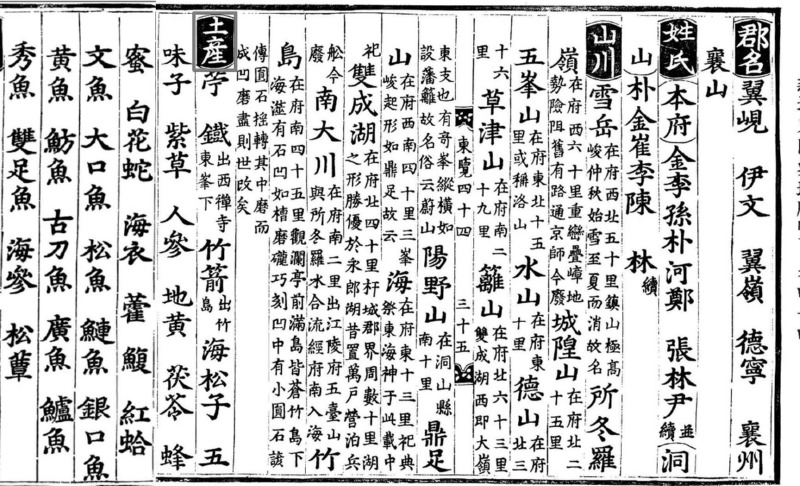 郡名 翼峴 伊文 翼嶺 德寧 襄州
襄山
姓氏 本府 金李孫朴河鄭 張林尹 並續 洞
山 朴金崔李陳 林 續
山川 雪岳 在府西北五十里鎮山極高峻仲秋始雪至夏而消故名 所冬羅
嶺 在府西六十里重巒疊嶂地勢險阻舊有路通京師今廢 城隍山 在府北二十五里
五峯山 在府東北十五里或稱洛山 水山 在府東十里 德山 在府北三
十六里 草津山 在府南二十九里 籬山 在府北六十三里雙成湖西即大嶺
東覽四十四 三十五
東支也有奇峯縱横如設藩籬故名俗云蔚山 陽野山 在洞山縣南十里 鼎足
山 在府西南四十里三峯峻起形如鼎足故云 海 在府東十三里祀典祭東海神于此載中
祀 雙成湖 在府北四十里杆城郡界周數十里湖之形勝優於永郎湖昔置萬戶營泊兵
舩今廢 南大川 在府南二里出江陵府五臺山與所冬羅水合流經府南入海 竹
島 在府南四十五里觀瀾亭前滿島皆蒼竹島下海滋有石凹如槽磨礲巧刻凹中有小圓石諺
傳圓石揺轉其中磨而成凹磨盡則世改矣
土產 苧 鐵 出西禪寺東峯下 竹箭 出竹島 海松子 五
味子 紫草 人參 地黄 茯苓 蜂
蜜 白花蛇 海衣 藿 鰒 紅蛤
文魚 大口魚 松魚 鰱魚 銀口魚
黄魚 魴魚 古刀魚 廣魚 鱸魚
秀魚 雙足魚 海參 松蕈